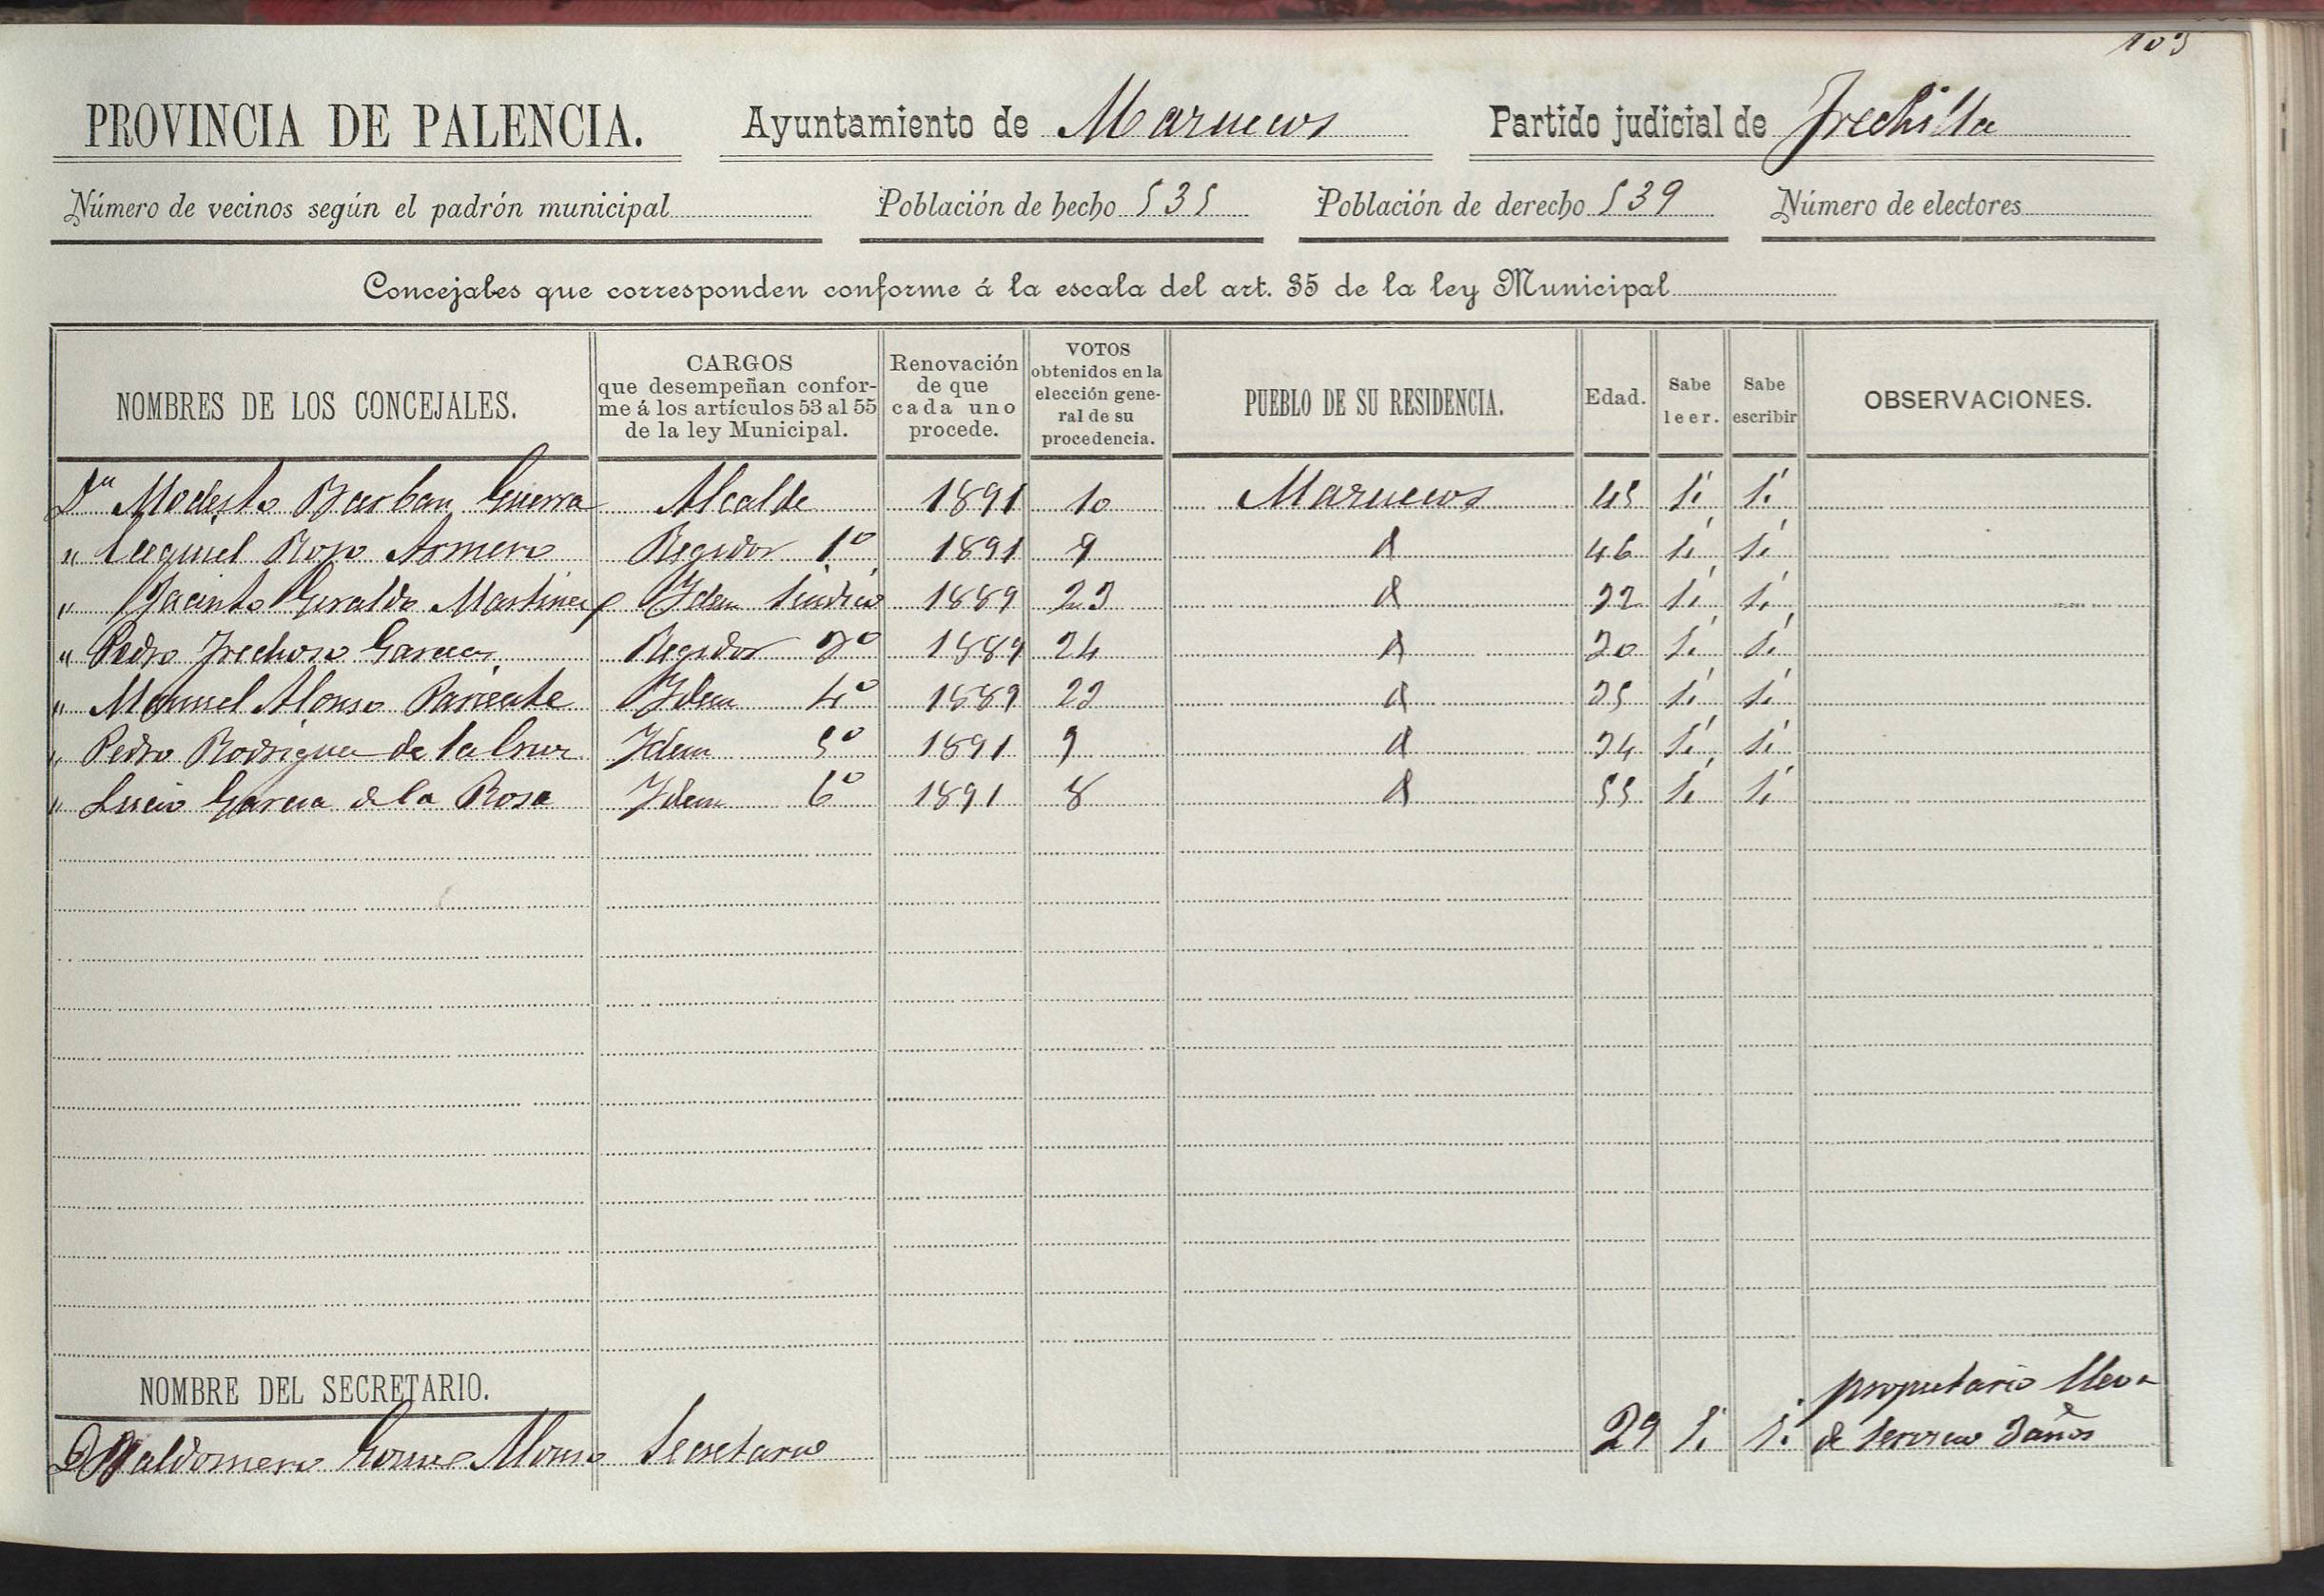 103
PROVINCIA DE PALENCIA. Ayuntamiento de Mazuecos Partido judicial de Frechilla
Número de vecinos según el padrón municipal Población de hecho 535 Población de derecho 539 Número de electores
Concejales que corresponden conforme á la escala del art. 35 de la ley Municipal
NOMBRES DE LOS CONCEJALES. CARGOS que desempeñan conforme á los artículos 53 al 55 de la ley Municipal. Renovación de que cada uno procede. VOTOS obtenidos en la elección general de su procedencia. PUEBLO DE SU RESIDENCIA. Edad. Sabe leer. Sabe escribir OBSERVACIONES.
Dn Modesto Barban Guerra Alcalde 1891 10 Mazuecos 45 Sí Sí
" Ecequiel Rojo Armero Regidor 1º 1891 9 Id 46 Sí Sí
" Jacinto Giraldo Martinez Idem Sindico 1889 23 Id 32 Sí Sí
" Pedro Frechoso Garcia Regidor 3º 1889 24 Id 30 Sí Sí
" Manuel Alonso Pariente Idem 4º 1889 23 Id 35 Sí Sí
" Pedro Rodriguez de la Cruz Idem 5º 1891 9 Id 34 Sí Sí
" Lucio Garcia de la Rosa Idem 6º 1891 8 Id 55 Sí Sí
NOMBRE DEL SECRETARIO.
D Valdomero Gomez Alonso Secretario 29 Sí Sí propietario lleva
de servicio 3 años